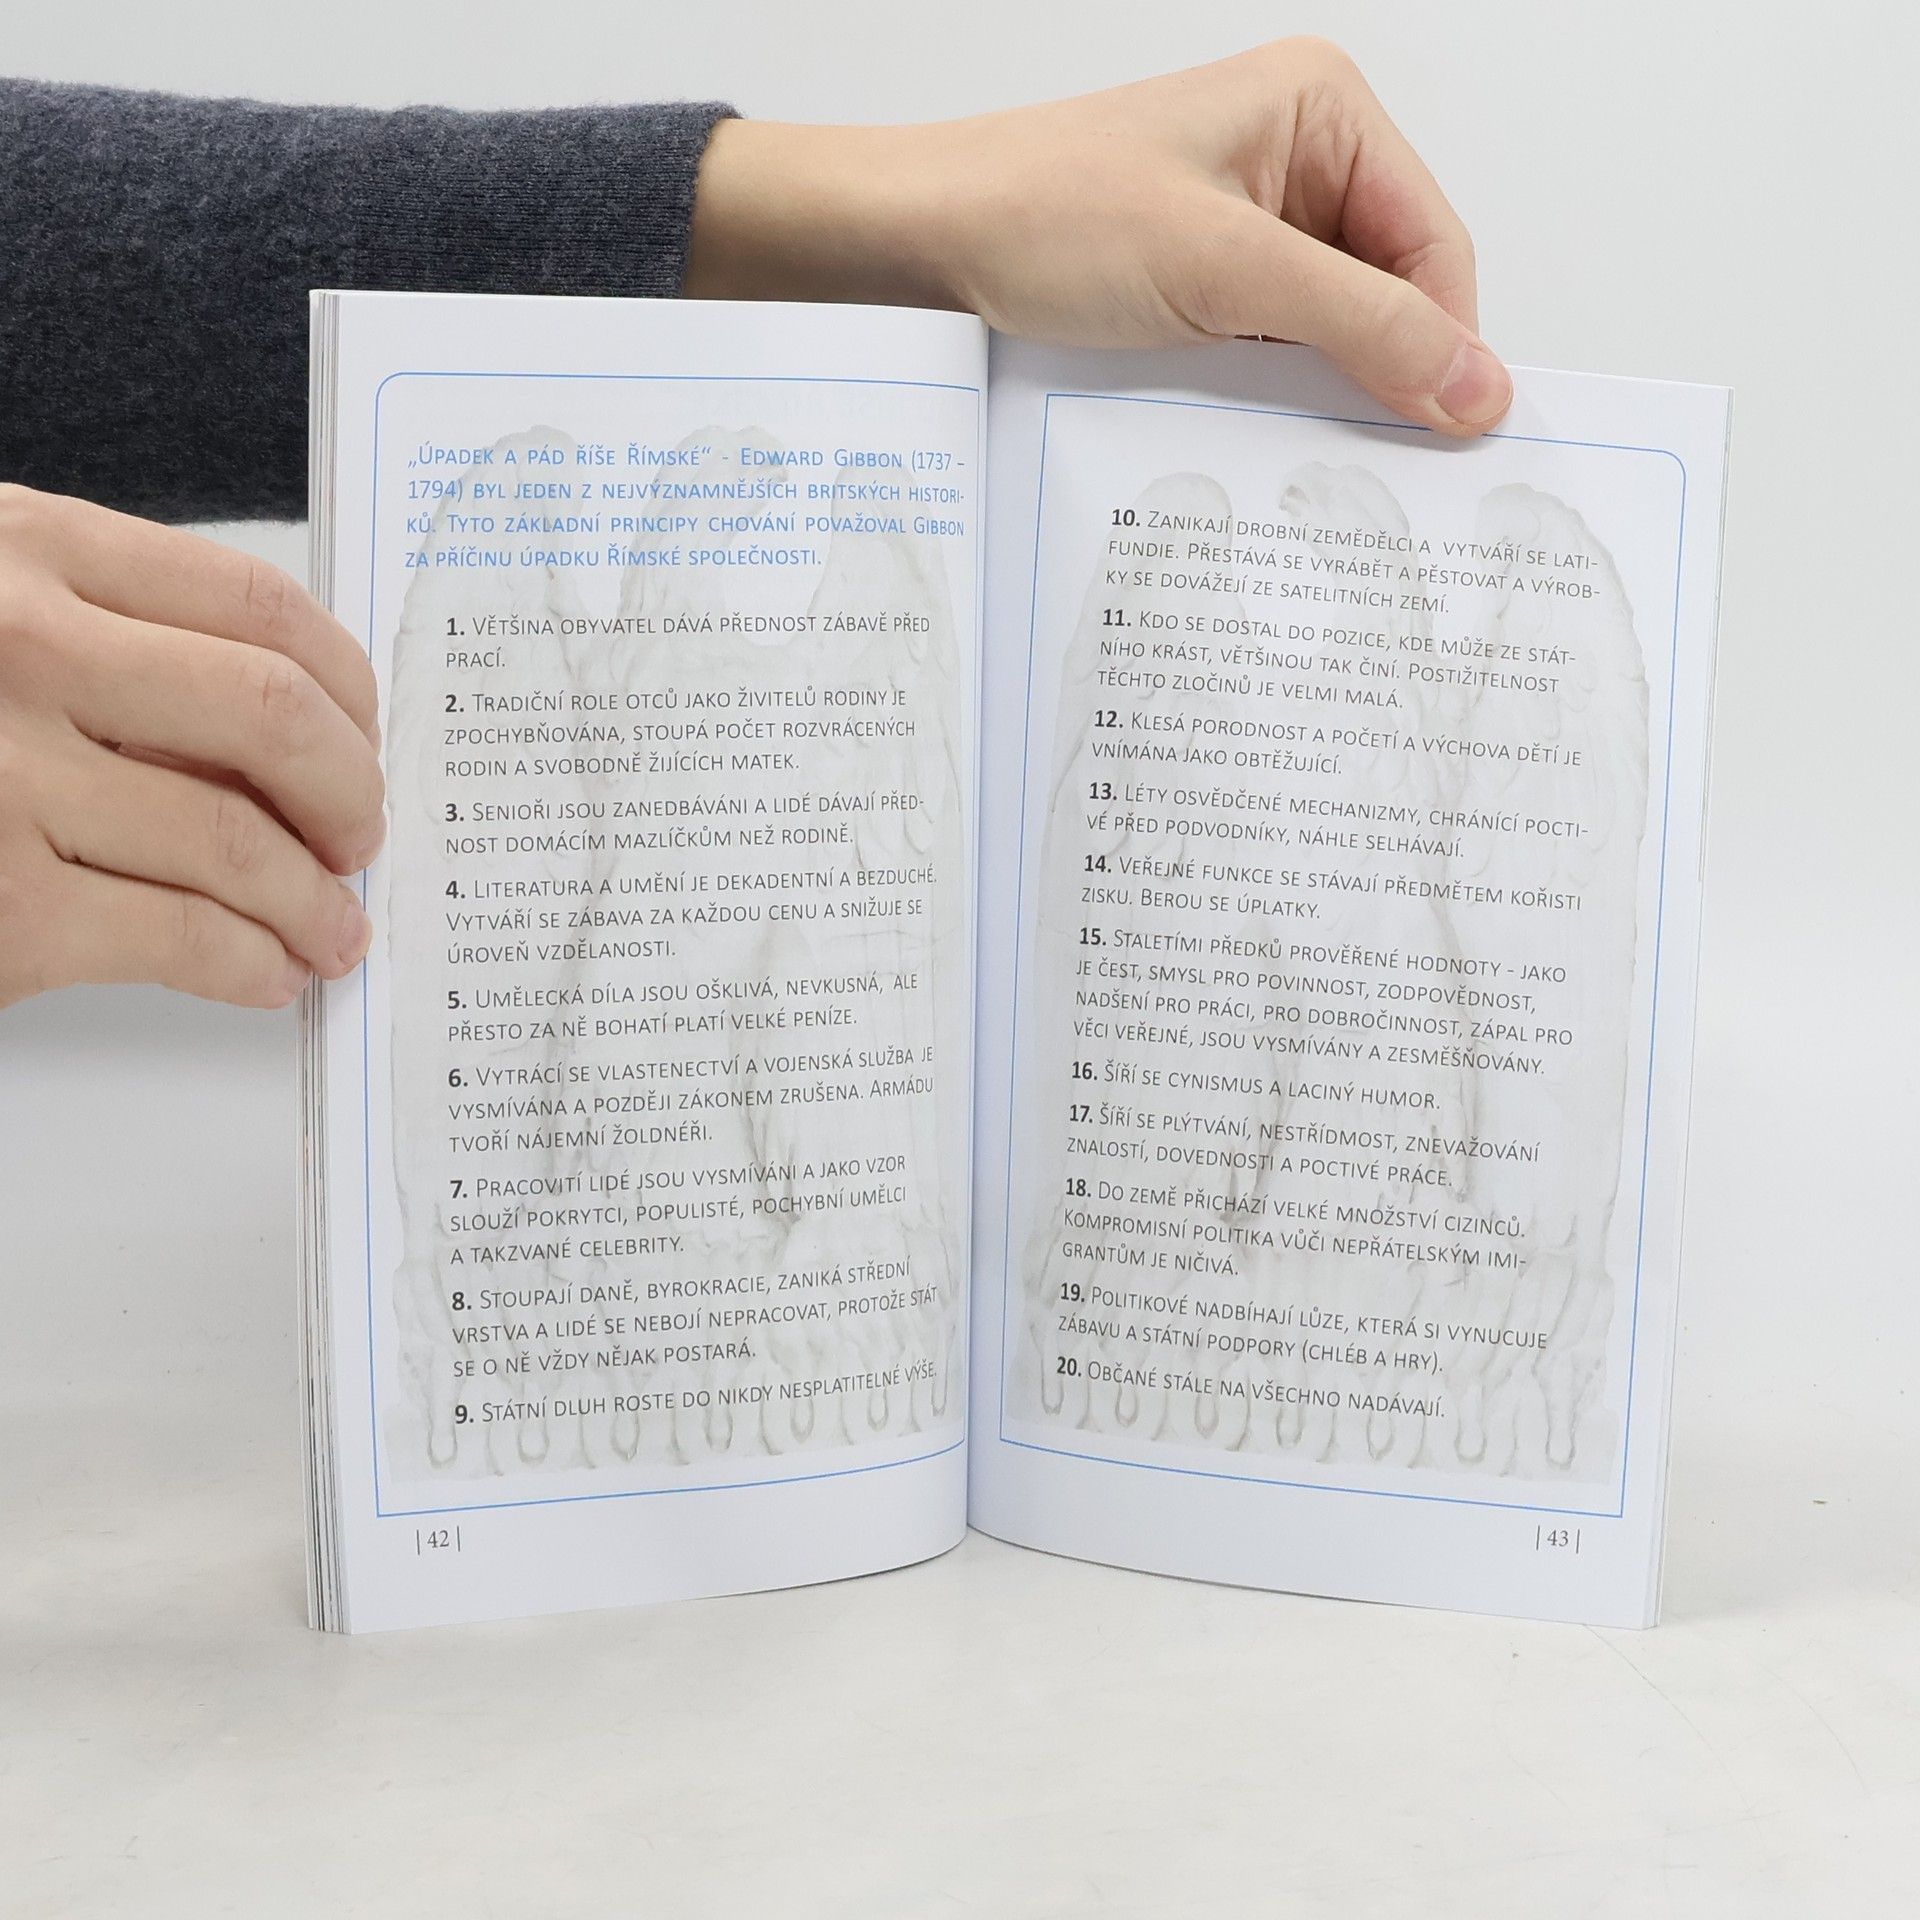 „Úpadek a pád říše Římské“ - Edward Gibbon (1737 –
1794) byl jeden z nejvýznamnějších britských histori-
ků. Tyto základní principy chování považoval Gibbon
za příčinu úpadku Římské společnosti.
1. Většina obyvatel dává přednost zábavě před
prací.
2. Tradiční role otců jako živitelů rodiny je
zpochybňována, stoupá počet rozvrácených
rodin a svobodně žijících matek.
3. Senioři jsou zanedbáváni a lidé dávají před-
nost domácím mazlíčkům než rodině.
4. Literatura a umění je dekadentní a bezduché.
Vytváří se zábava za každou cenu a snižuje se
úroveň vzdělanosti.
5. Umělecká díla jsou ošklivá, nevkusná, ale
přesto za ně bohatí platí velké peníze.
6. Vytrácí se vlastenectví a vojenská služba je
vysmívána a později zákonem zrušena. Armádu
tvoří nájemní žoldnéři.
7. Pracovití lidé jsou vysmíváni a jako vzor
slouží pokrytci, populisté, pochybní umělci
a takzvané celebrity.
8. Stoupají daně, byrokracie, zaniká střední
vrstva a lidé se nebojí nepracovat, protože stát
se o ně vždy nějak postará.
9. Státní dluh roste do nikdy nesplatitelné výše.
| 42 |
10. Zanikají drobní zemědělci a vytváří se lati-
fundie. Přestává se vyrábět a pěstovat a výrob-
ky se dovážejí ze satelitních zemí.
11. Kdo se dostal do pozice, kde může ze stát-
ního krást, většinou tak činí. Postižitelnost
těchto zločinů je velmi malá.
12. Klesá porodnost a početí a výchova dětí je
vnímána jako obtěžující.
13. Léty osvědčené mechanizmy, chránící pocti-
vé před podvodníky, náhle selhávají.
14. Veřejné funkce se stávají předmětem kořisti
zisku. Berou se úplatky.
15. Staletími předků prověřené hodnoty - jako
je čest, smysl pro povinnost, zodpovědnost,
nadšení pro práci, pro dobročinnost, zápal pro
věci veřejné, jsou vysmívány a zesměšňovány.
16. Šíří se cynismus a laciný humor.
17. Šíří se plýtvání, nestřídmost, znevažování
znalostí, dovednosti a poctivé práce.
18. Do země přichází velké množství cizinců.
Kompromisní politika vůči nepřátelským imi-
grantům je ničivá.
19. Politikové nadbíhají lůze, která si vynucuje
zábavu a státní podpory (chléb a hry).
20. Občané stále na všechno nadávají.
| 43 |